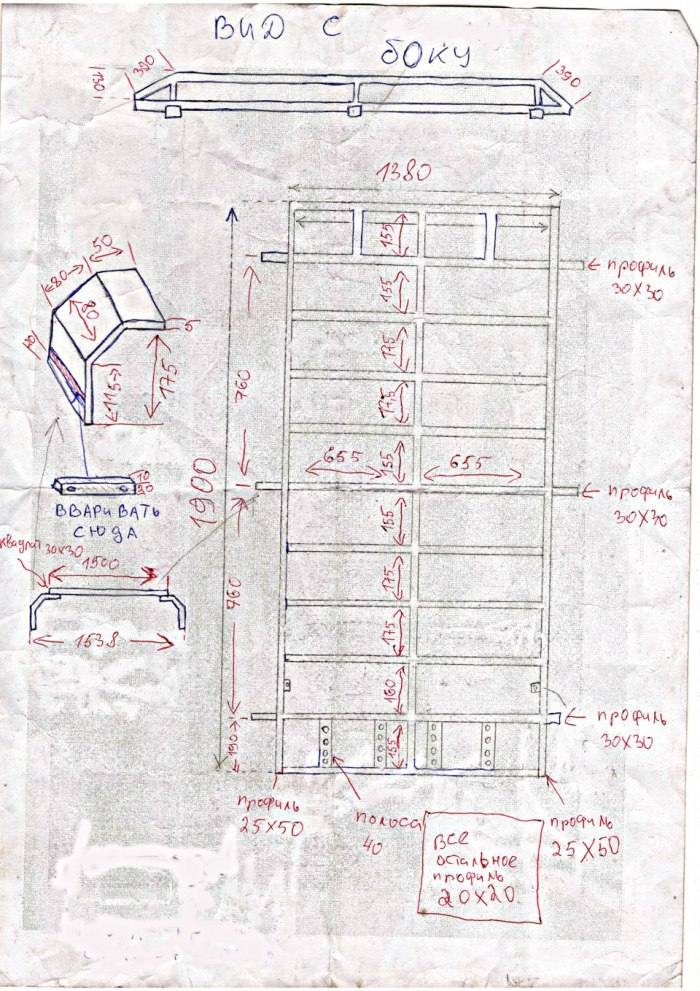 ВИД С
БОКУ
390
130
390
1380
155
профиль
30х30
50
80
80
5
155
175
175
115
175
760
1900
655
155
655
10
20
ВВАРИВАТЬ
СЮДА
профиль
30х30
155
30х30
1500
175
760
1538
175
160
профиль
30х30
190
155
профиль
25х50
полоса
40
профиль
25х50
ВСЕ
остальное
профиль
20х20